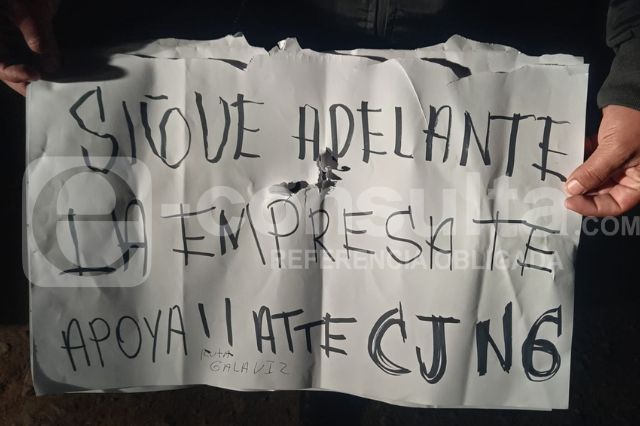 SIGUE ADELANTE
LA EMPRESA TE
APOYA!! ATTE CJNG
RUTA
GALAVIZ
e-consulta
.COM
REFERENCIA OBLIGADA